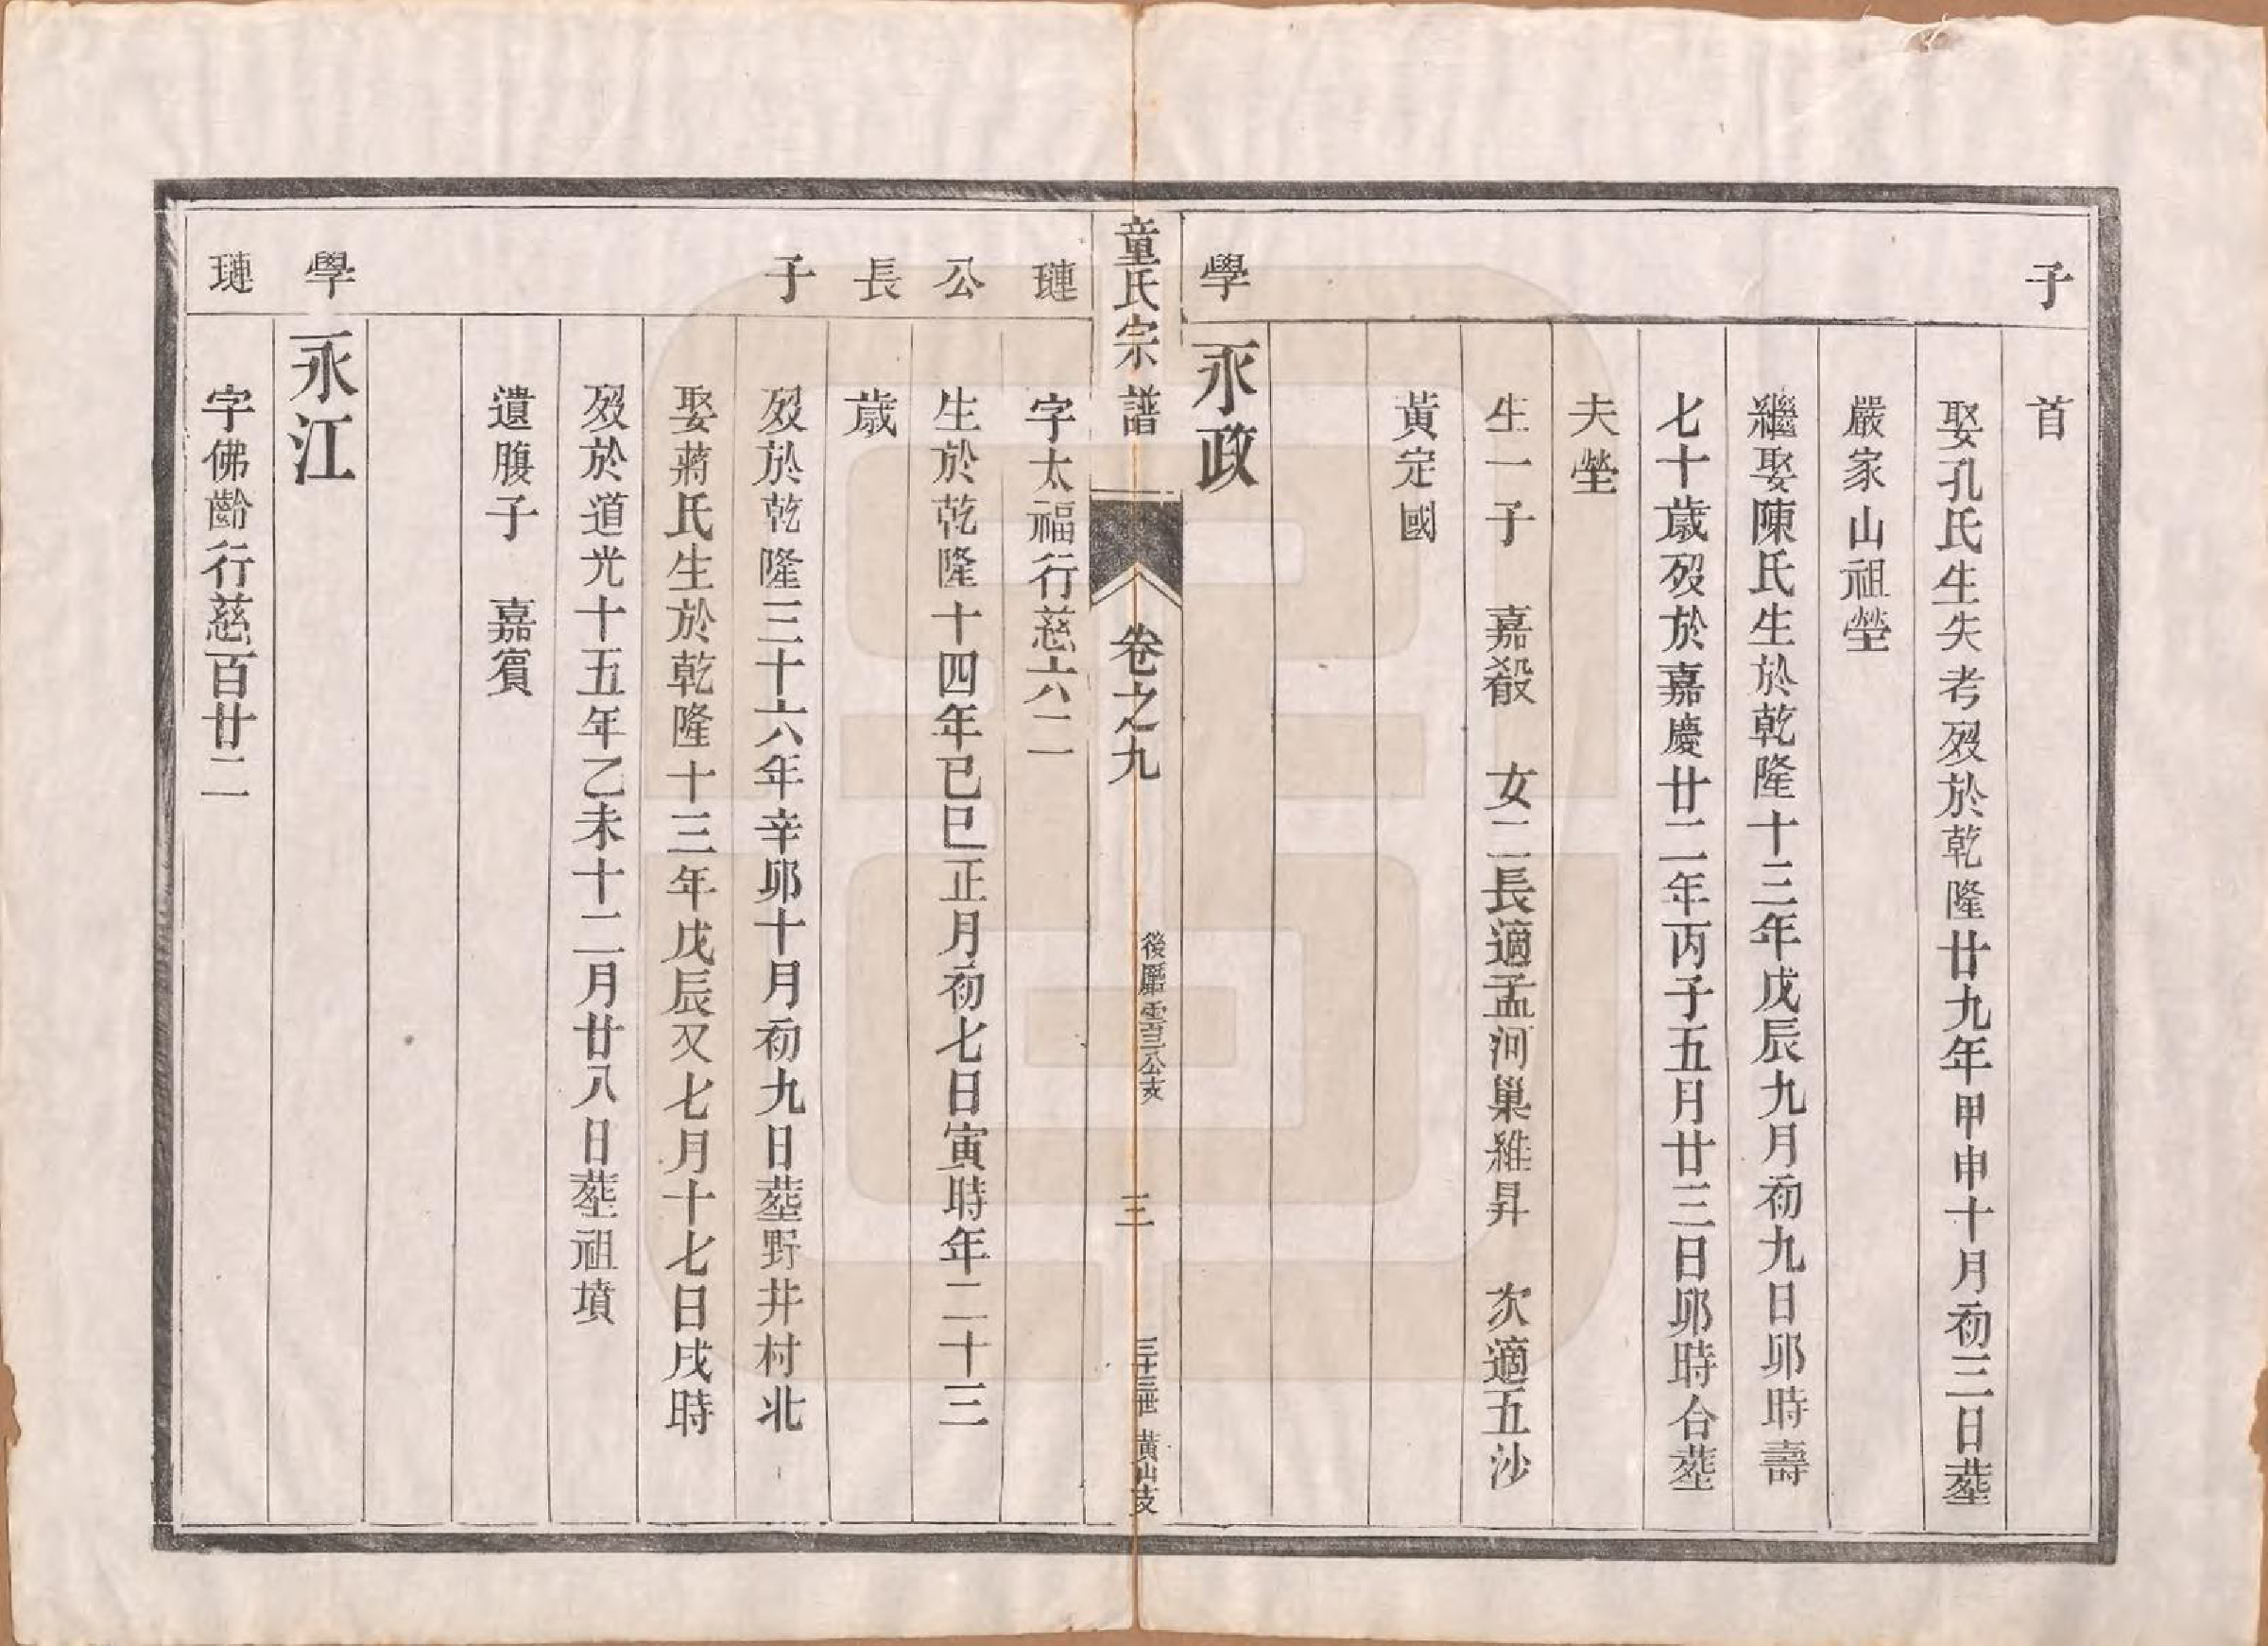 子
首
娶孔氏生失考歿於乾隆廿九年甲申十月初三日塟
嚴家山祖塋
繼娶陳氏生於乾隆十三年戊辰九月初九日夘時壽
七十歲歿於嘉慶廿二年丙子五月廿三日夘時合塟
夫塋
生一子 嘉殽 女二長適孟河巢維昇 次適五沙
黃定國
學
永政
童氏宗譜 卷之九 後巸雲巳公支 三 三十三世 黃山支
璉公長子
字太福行慈六二
生於乾隆十四年己巳正月初七日寅時年二十三
歲
歿於乾隆三十六年辛夘十月初九日塟野井村北
娶蔣氏生於乾隆十三年戊辰又七月十七日戌時
歿於道光十五年乙未十二月廿八日塟祖墳
遺腹子 嘉賔
學
永江
璉
字佛齡行慈百廿二